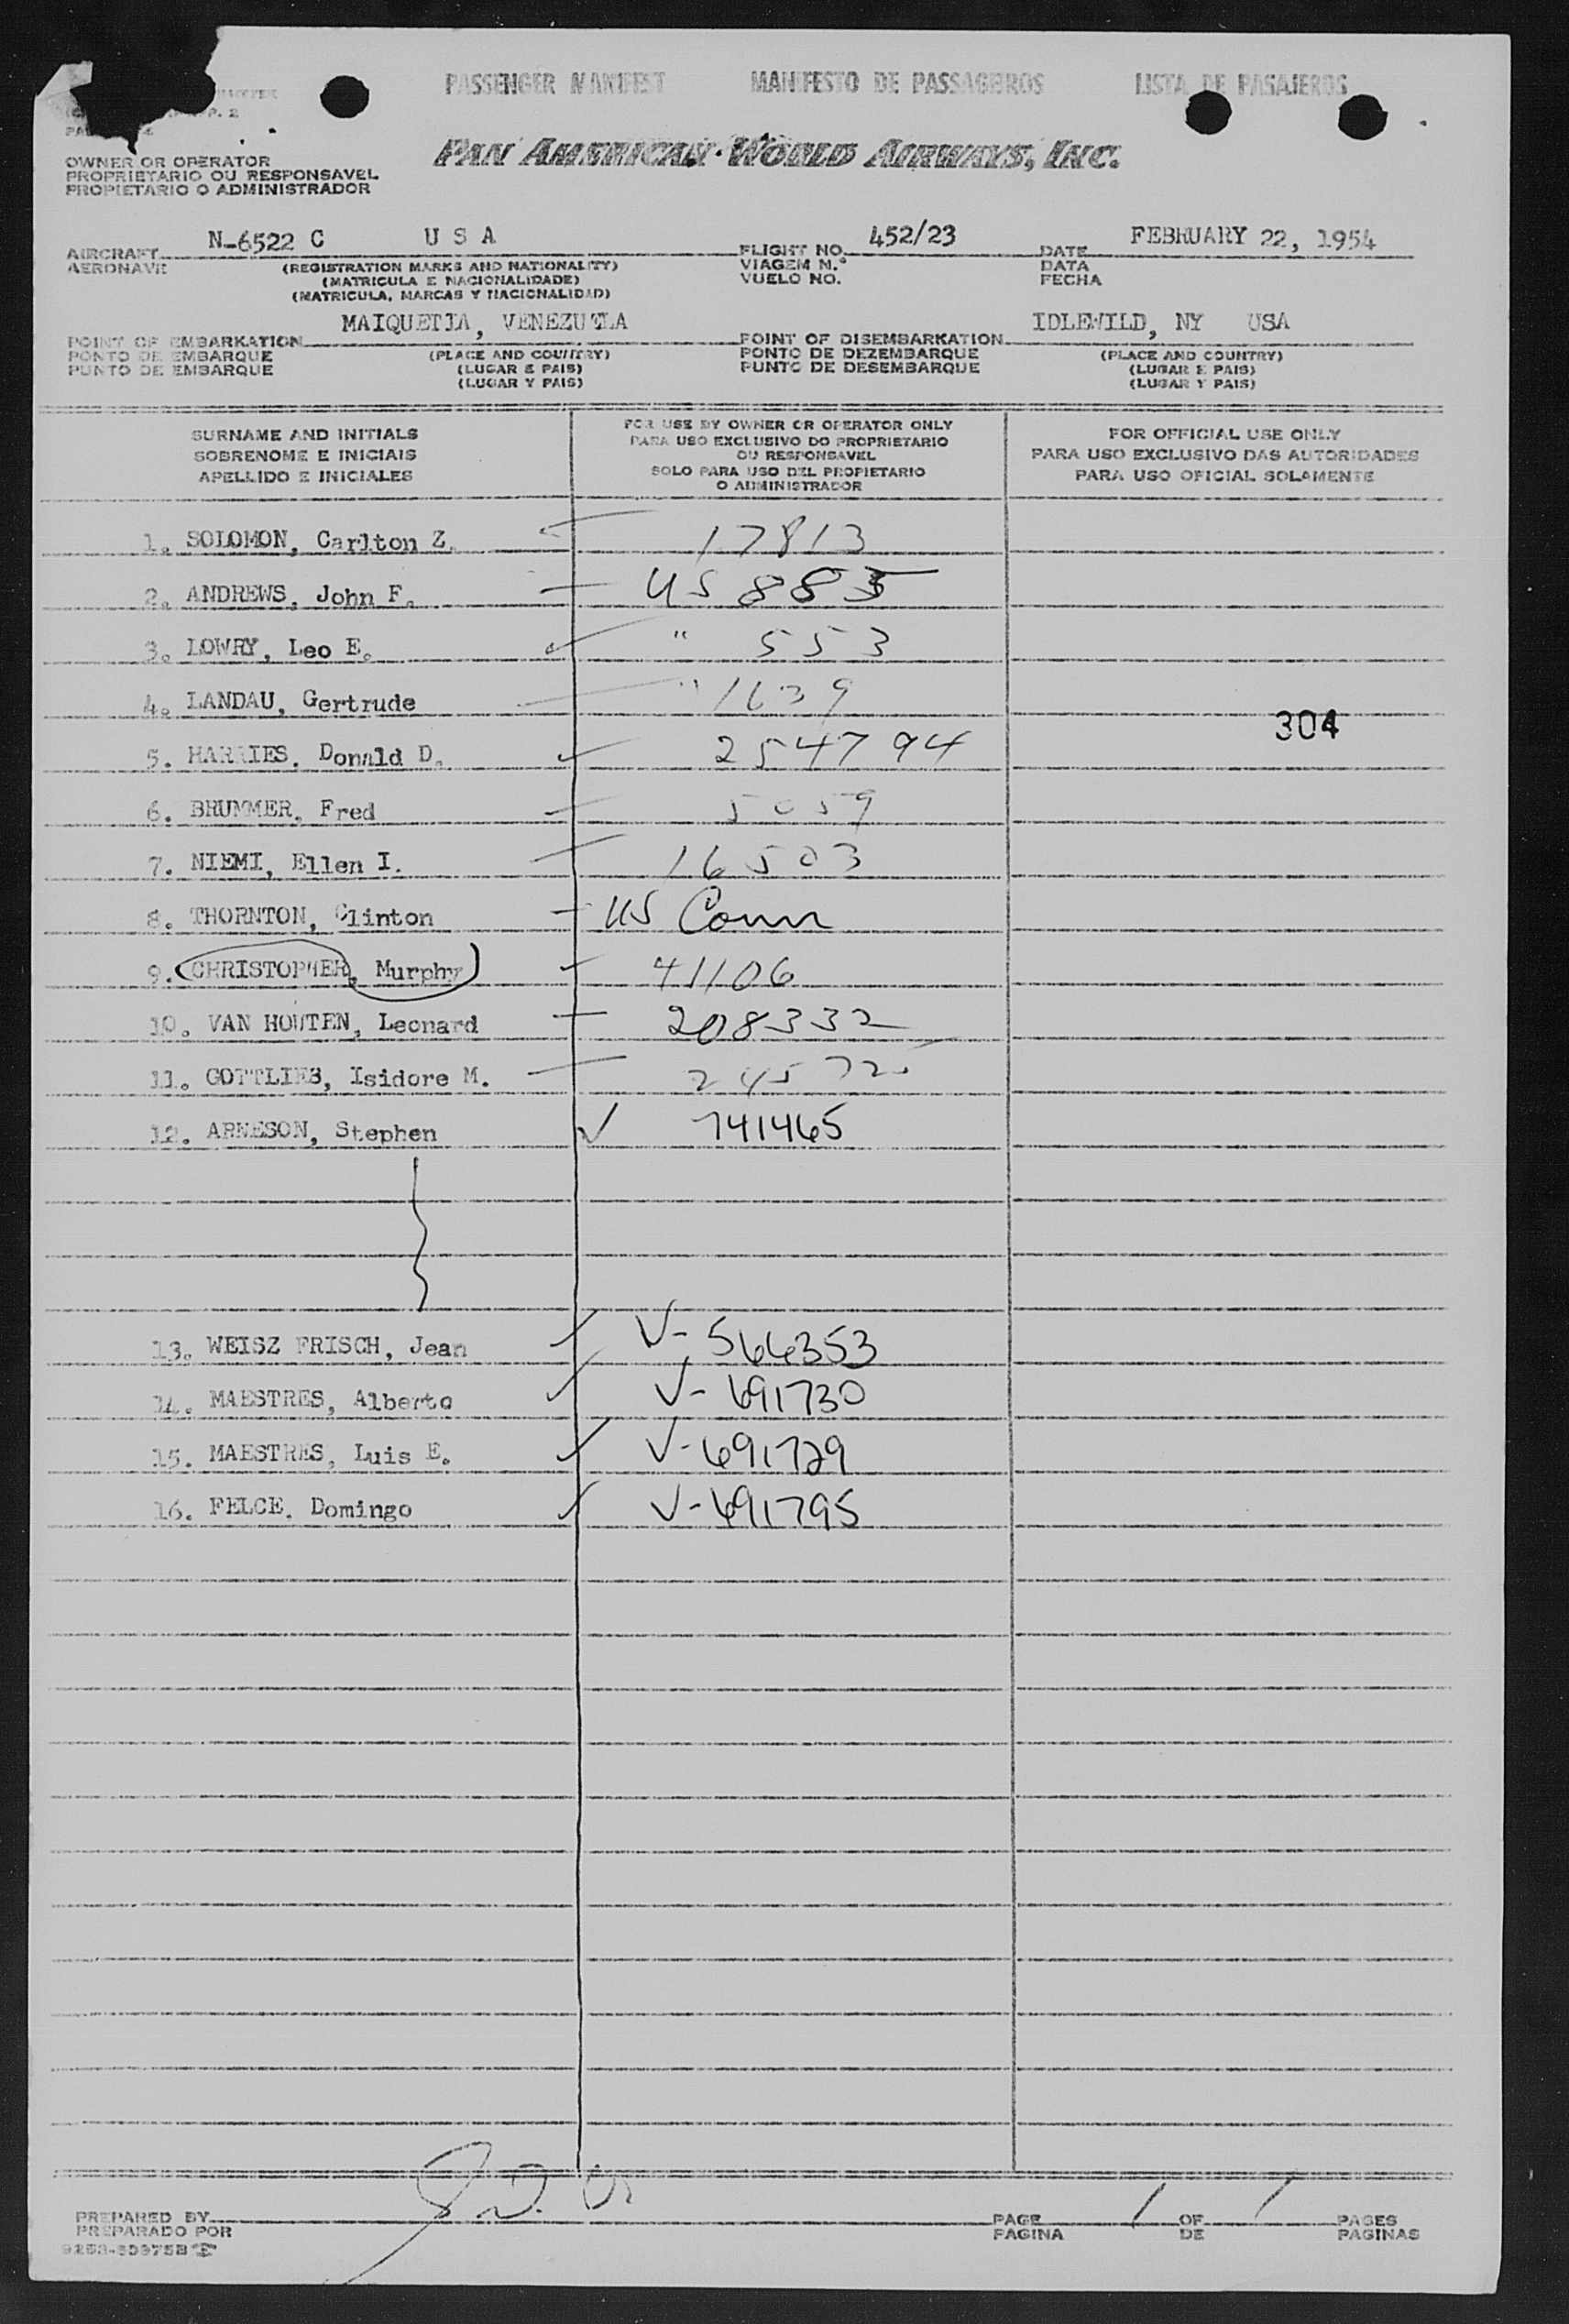 PASSENGER MANIFEST MANIFESTO DE PASSAGEIROS LISTA DE PASAJEROS
P. 2
OWNER OR OPERATOR
PROPRIETARIO OU RESPONSAVEL
PROPIETARIO O ADMINISTRADOR
PAN AMERICAN WORLD AIRWAYS, INC.
AIRCRAFT N-6522 C U S A FLIGHT NO. 452/23 DATE FEBRUARY 22, 1954
AERONAVE (REGISTRATION MARKS AND NATIONALITY) VIAGEM N.º DATA
(MATRICULA E NACIONALIDADE) VUELO NO. FECHA
(MATRICULA, MARCAS Y NACIONALIDAD)
POINT OF EMBARKATION MAIQUETIA, VENEZUELA POINT OF DISEMBARKATION IDLEWILD, NY USA
PONTO DE EMBARQUE (PLACE AND COUNTRY) PONTO DE DEZEMBARQUE (PLACE AND COUNTRY)
PUNTO DE EMBARQUE (LUGAR E PAIS) PUNTO DE DESEMBARQUE (LUGAR E PAIS)
(LUGAR Y PAIS) (LUGAR Y PAIS)
SURNAME AND INITIALS
SOBRENOME E INICIAIS
APELLIDO E INICIALES
FOR USE BY OWNER OR OPERATOR ONLY
PARA USO EXCLUSIVO DO PROPRIETARIO
OU RESPONSAVEL
SOLO PARA USO DEL PROPIETARIO
O ADMINISTRADOR
FOR OFFICIAL USE ONLY
PARA USO EXCLUSIVO DAS AUTORIDADES
PARA USO OFICIAL SOLAMENTE
1. SOLOMON, Carlton Z. 17813
2. ANDREWS, John F. US 885
3. LOWRY, Leo E. " 553
4. LANDAU, Gertrude " 1639
304
5. HARRIES, Donald D. 254794
6. BRUMMER, Fred 5059
7. NIEMI, Ellen I. 16503
8. THORNTON, Clinton US Conn
9. CHRISTOPHER, Murphy 41106
10. VAN HOUTEN, Leonard 208332
11. GOTTLIEB, Isidore M.
12. ARNESON, Stephen 741465
13. WEISZ FRISCH, Jean V-566353
14. MAESTRES, Alberto V-691730
15. MAESTRES, Luis E. V-691729
16. FELCE, Domingo V-691795
PREPARED BY PAGE 1 OF 1 PAGES
PREPARADO POR PAGINA DE PAGINAS